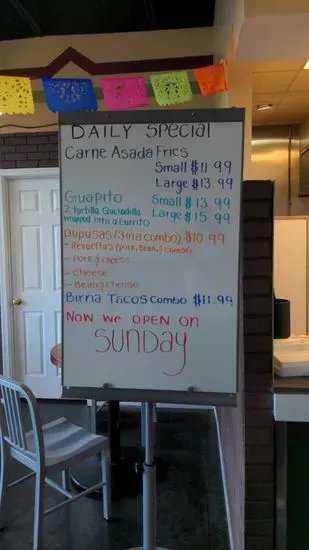 DAILY Special
Carne Asada Fries
Small $11.99
Large $13.99
Guapito Small $13.99
2 tortilla Quesadilla Large $15.99
wrapped into a burrito
Pupusas (3 in a combo) $10.99
- Revueltas (pork, Bean, cheese)
- Pork y cheese
- cheese
- Bean y cheese
Birria Tacos combo $11.99
NOW WE OPEN ON
SUNDAY